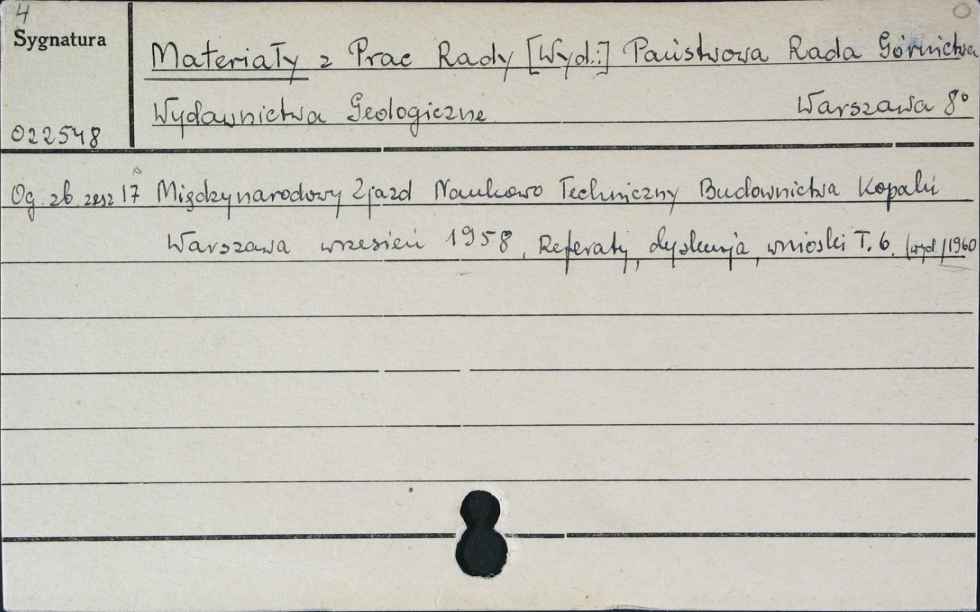 4
Sygnatura
Materiały z Prac Rady [Wyd.:] Państwowa Rada Górnictwa
Wydawnictwa Geologiczne Warszawa 8°
022548
Og. zb. zesz 17 Międzynarodowy Zjazd Naukowo Techniczny Budownictwa Kopalń
Warszawa wrzesień 1958, Referaty, dyskusja, wnioski T. 6. (wyd) 1960